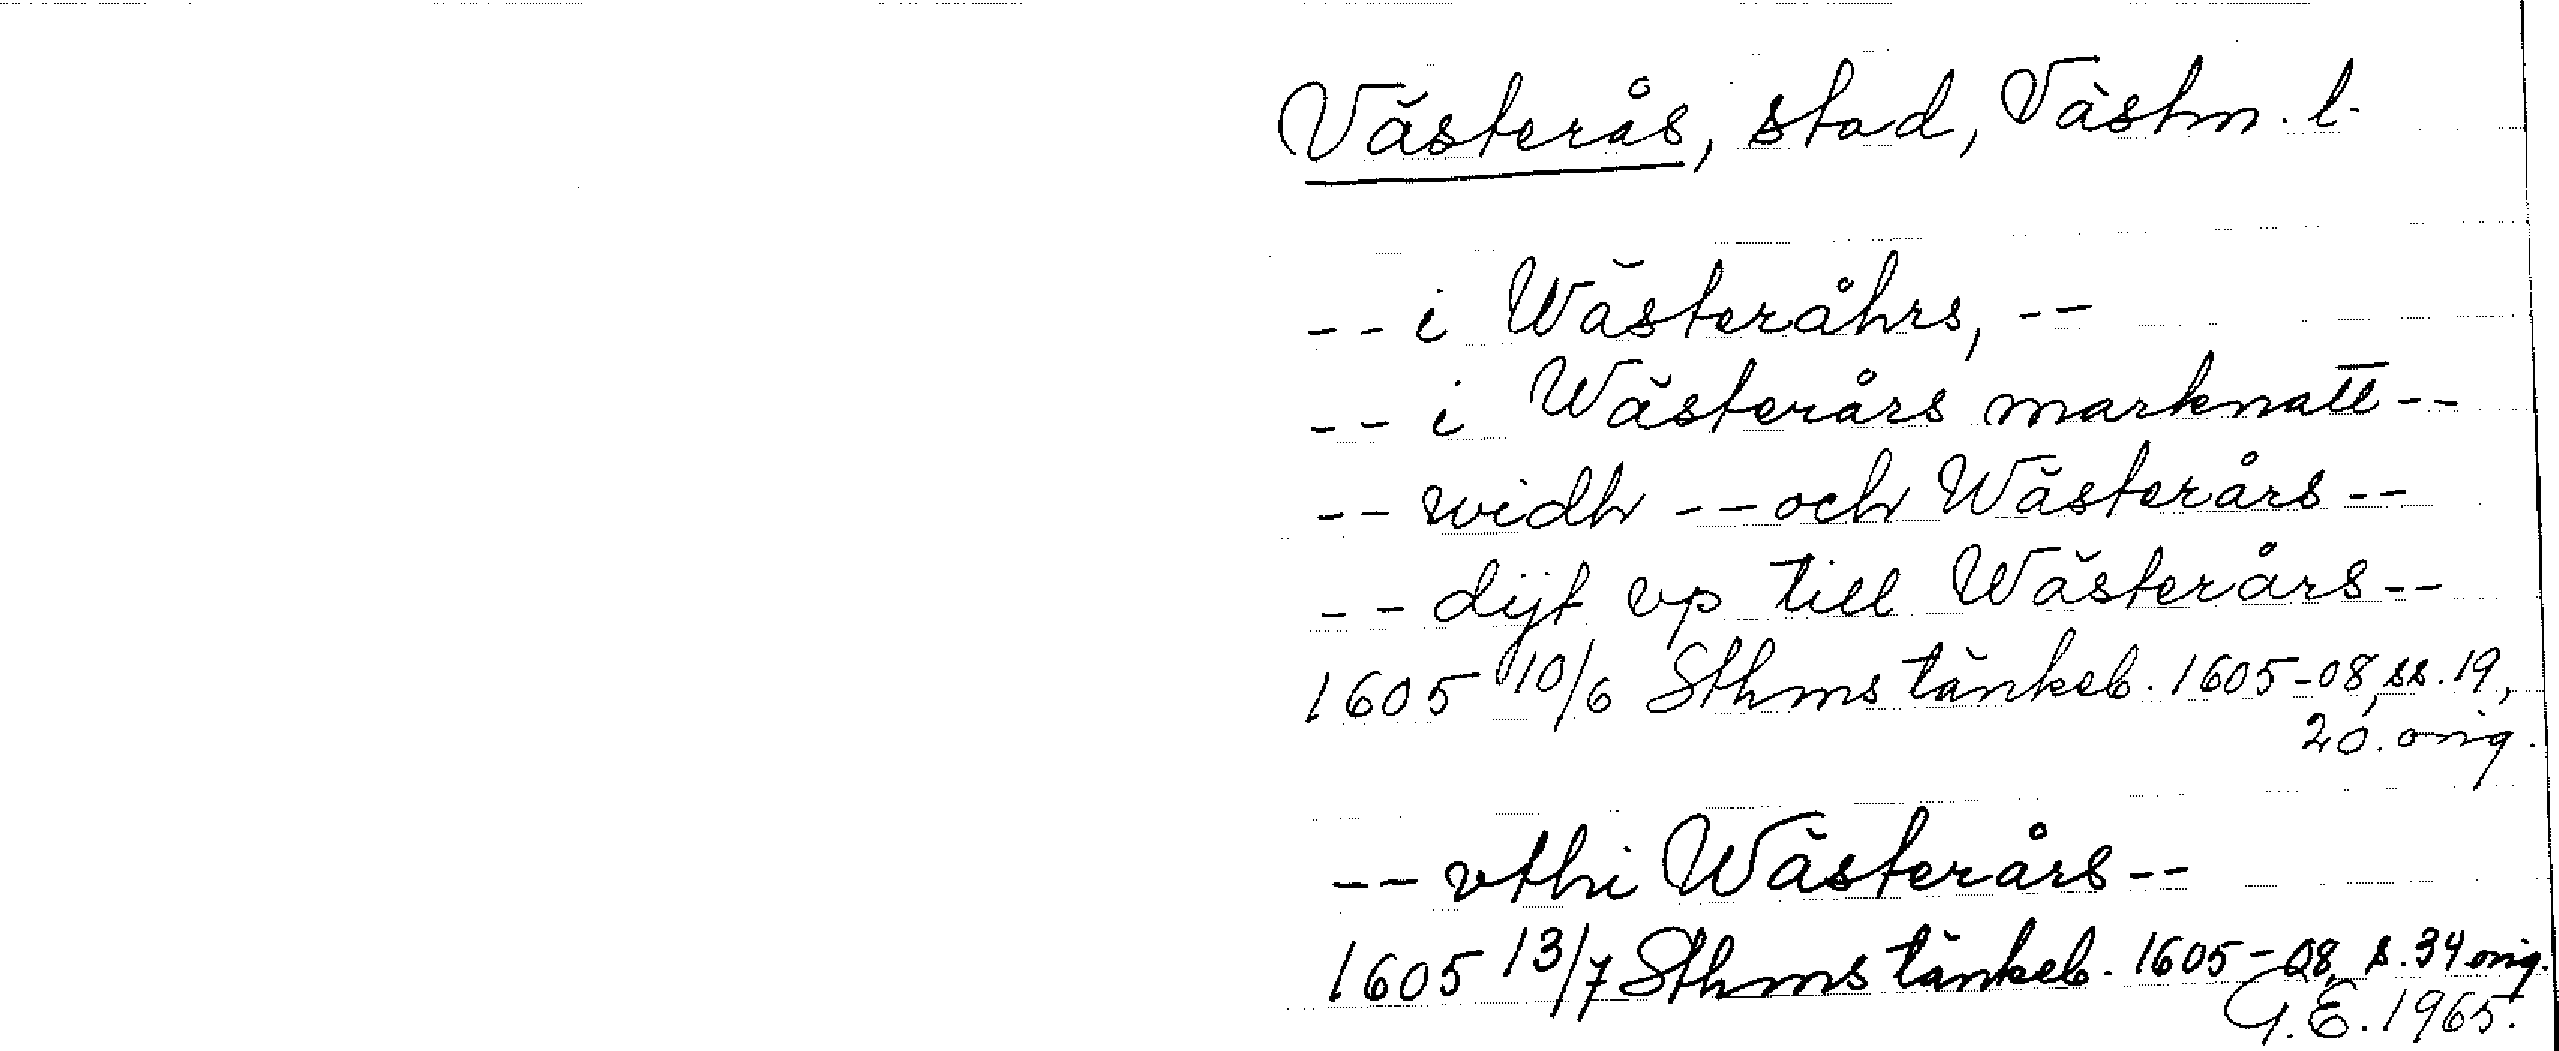 Västerås, stad, Västm. l.
-- i Wästeråhrs, --
-- i Wästerårs marknatt --
-- widh -- och Wästerårs --
-- dijt vp till Wästerårs --
1605 10/6 Sthms tänkeb. 1605-08, ss. 19,
20. orig.
-- vthi Wästerårs --
1605 13/7 Sthms tänkeb. 1605-08, s. 34 orig.
G.E. 1965.